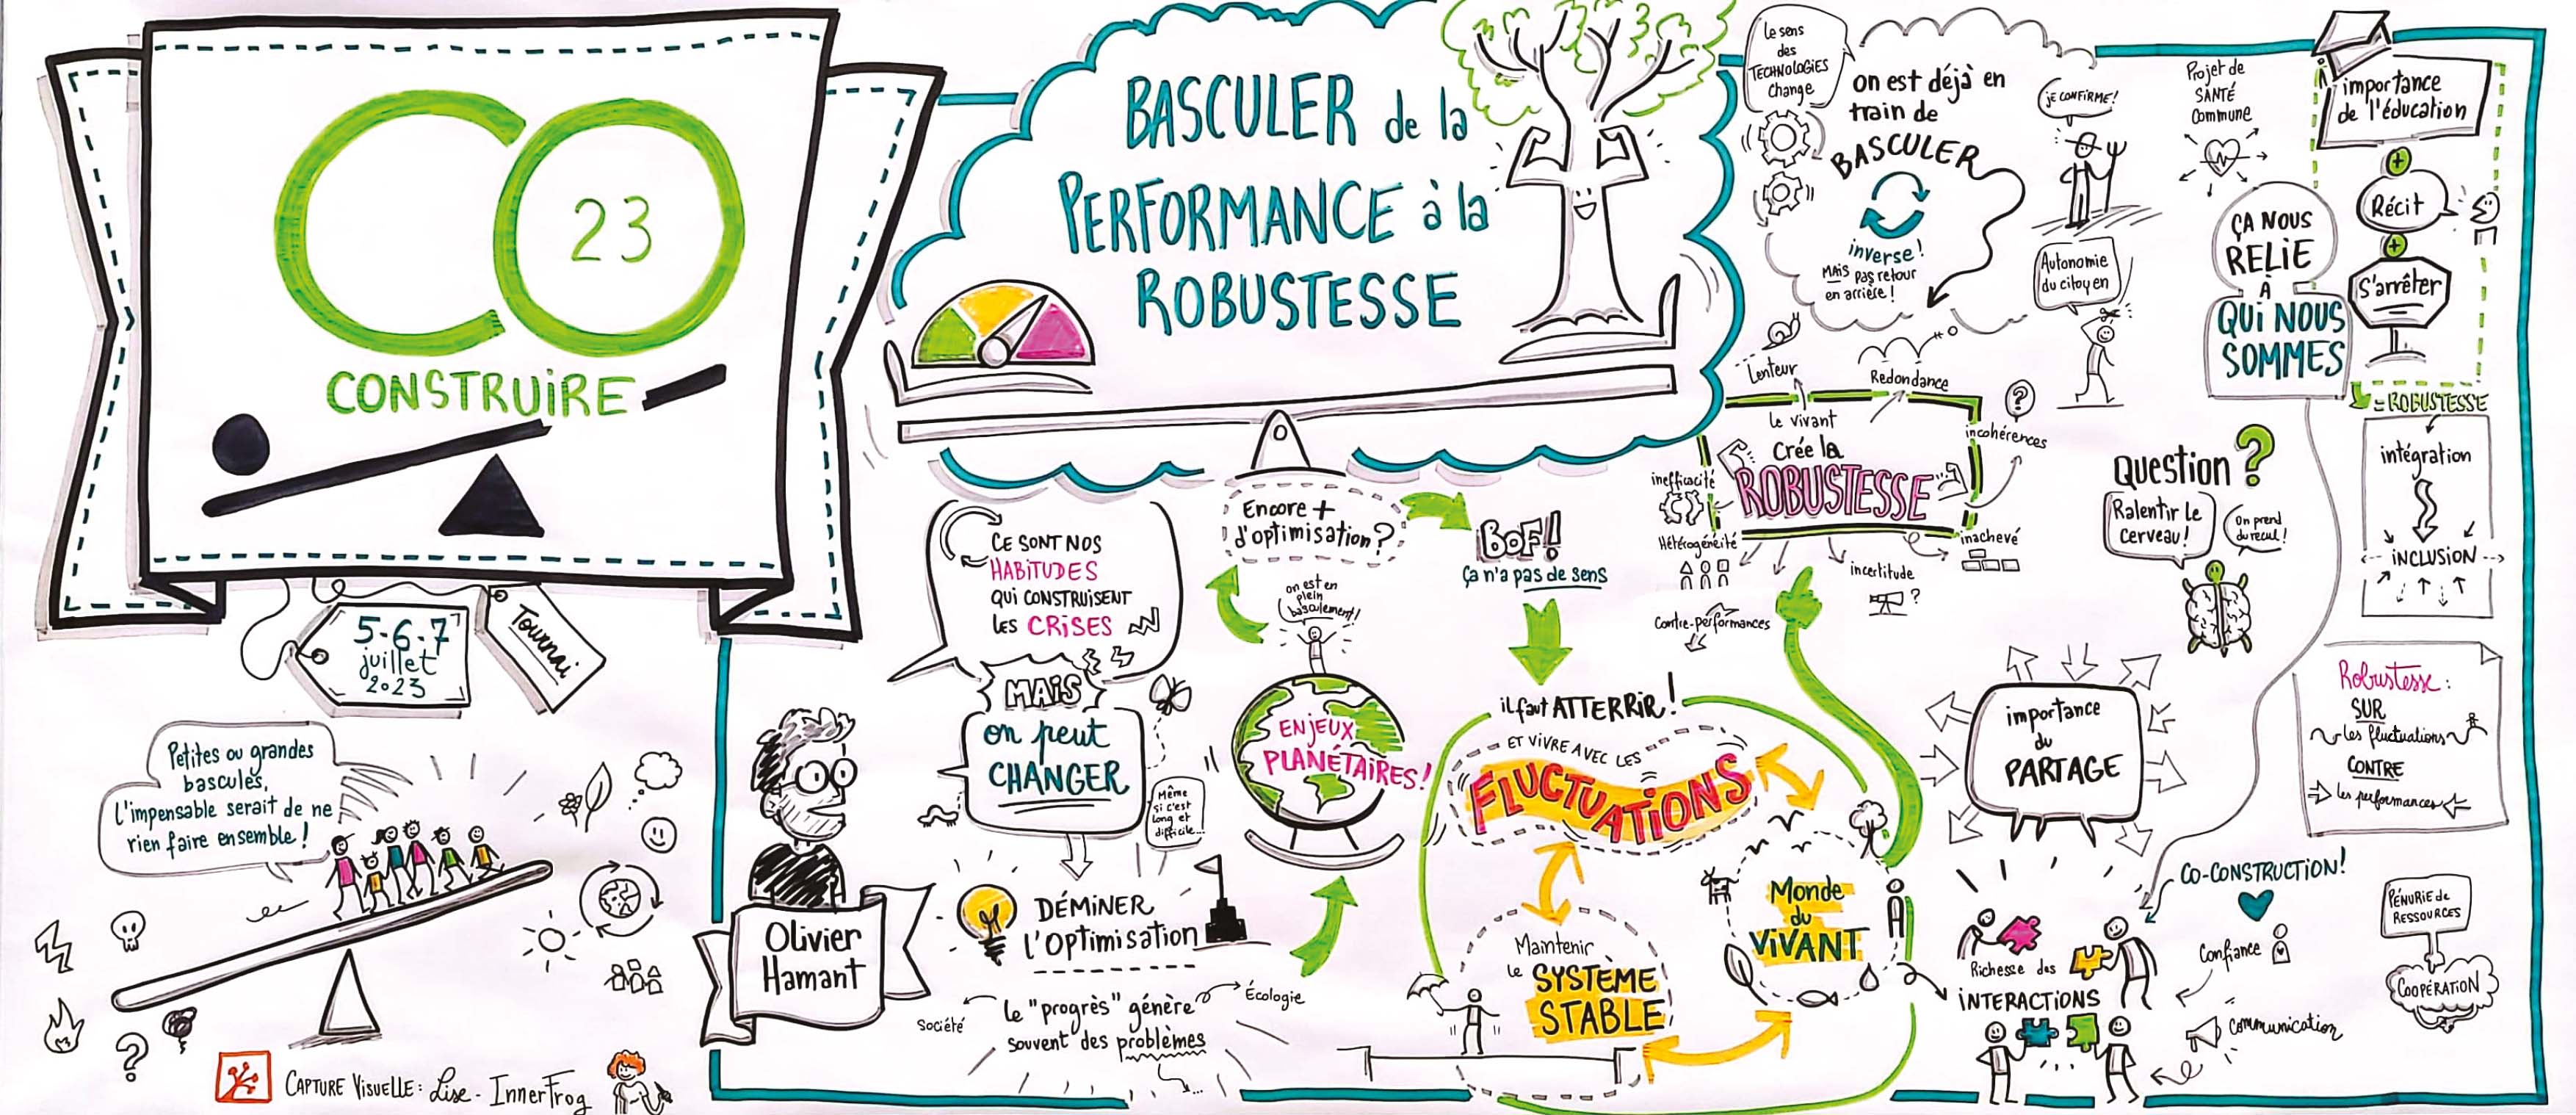 CO
23
CONSTRUIRE
5-6-7
juillet
2023
Tournai
Petites ou grandes
bascules,
L'impensable serait de ne
rien faire ensemble !
?
CAPTURE VISUELLE : Lise - InnerFrog
BASCULER de la
PERFORMANCE à la
ROBUSTESSE
Olivier
Hamant
CE SONT NOS
HABITUDES
QUI CONSTRUISENT
les CRISES
MAIS
on peut
CHANGER
Même
si c'est
long et
difficile...
DÉMINER
l'Optimisation
Le "progrès" génère
souvent des problèmes
Société
Écologie
...
ENJEUX
PLANÉTAIRES !
on est en
plein
basculement!
Encore +
d'optimisation ?
BOF!
Ça n'a pas de sens
il faut ATTERRIR !
ET VIVRE AVEC LES
FLUCTUATIONS
Maintenir
le SYSTÈME
STABLE
Monde
du
VIVANT
Le sens
des
TECHNOLOGIES
Change
on est déjà en
train de
BASCULER
inverse !
MAIS pas retour
en arrière !
JE CONFIRME !
Autonomie
du citoyen
Projet de
SANTÉ
Commune
le vivant
Crée la
ROBUSTESSE
Lenteur
Redondance
?
incohérences
inachevé
incertitude
?
Contre-performances
Hétérogénéité
inefficacité
ÇA NOUS
RELIE
À
QUI NOUS
SOMMES
importance
de l'éducation
+
Récit
+
S'arrêter
= ROBUSTESSE
intégration
INCLUSION
Question ?
Ralentir le
cerveau !
On prend
du recul !
importance
du
PARTAGE
Robustesse :
SUR
les fluctuations
CONTRE
les performances
CO-CONSTRUCTION !
Richesse des
INTERACTIONS
Confiance
Communication
PÉNURIE de
RESSOURCES
COOPÉRATION